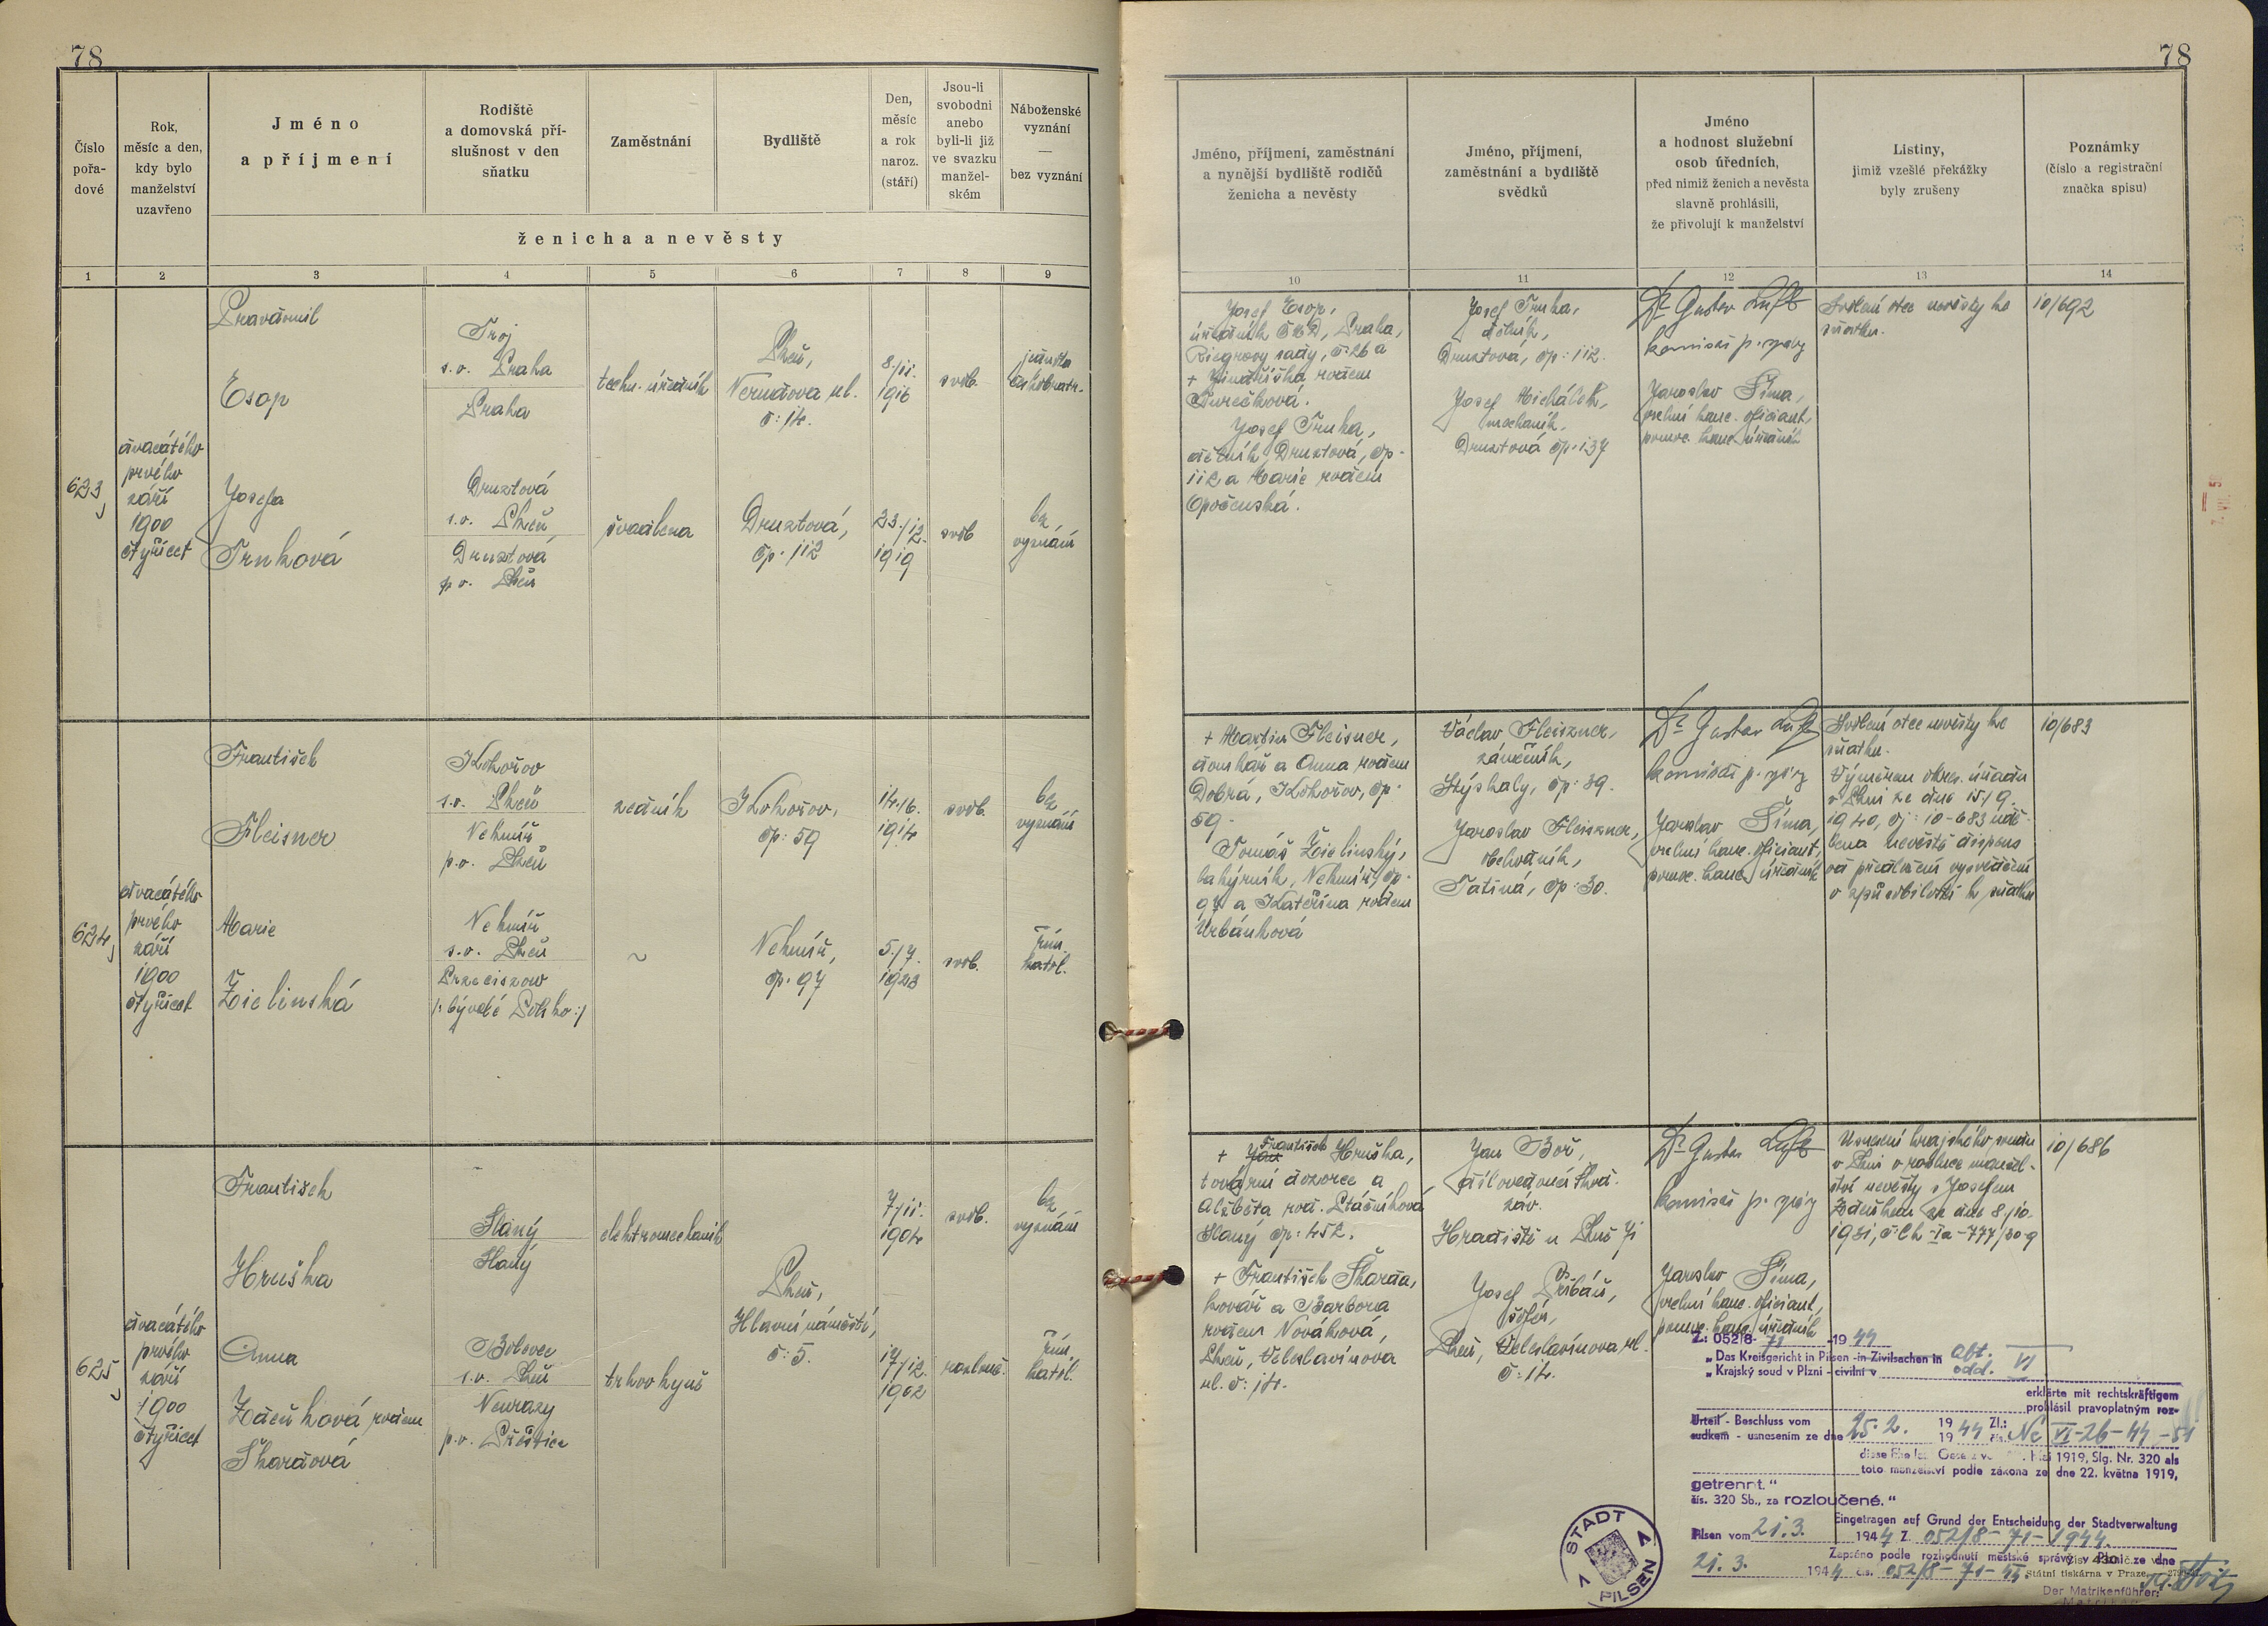 78
78
Číslo
pořa-
dové
Rok,
měsíc a den,
kdy bylo
manželství
uzavřeno
Jméno
a příjmení
Rodiště
a domovská pří-
slušnost v den
sňatku
Zaměstnání
Bydliště
Den,
měsíc
a rok
naroz.
(stáří)
Jsou-li
svobodni
anebo
byli-li již
ve svazku
manžel-
ském
Náboženské
vyznání
—
bez vyznání
ženicha a nevěsty
1 2 3 4 5 6 7 8 9
Jméno, příjmení, zaměstnání
a nynější bydliště rodičů
ženicha a nevěsty
Jméno, příjmení,
zaměstnání a bydliště
svědků
Jméno
a hodnost služební
osob úředních,
před nimiž ženich a nevěsta
slavně prohlásili,
že přivolují k manželství
Listiny,
jimiž vzešlé překážky
byly zrušeny
Poznámky
(číslo a registrační
značka spisu)
10 11 12 13 14
623
dvacátého
prvého
září
1900
čtyřicet
Pravdomil
Esop
Troj
s.o. Praha
Praha
techn. úředník
Plzeň,
Nerudova ul.
č: 14.
8./11.
1916
svob.
Josefa
Trnková
Druztová
s.o. Plzeň
Druztová
p.o. Plzeň
švadlena
Druztová,
čp. 112
23./12.
1919
svob
bez
vyznání
Josef Esop,
úředník ČMD, Praha,
Riegrovy sady, č. 26 a
+ Jindřiška rodem
Turečková.
Josef Trnka,
dělník, Druztová, čp.
112 a Marie rodem
Opočenská.
Josef Trnka,
dělník,
Druztová, čp: 112.
Josef Michálek,
mechanik,
Druztová čp. 137
Dr Gustav Luft
komisař p. správy
Jaroslav Šíma,
vrchní kanc. oficiant,
pomoc. kanc. úředník
Svolení otce nevěsty ke
sňatku.
10/692
624
dvacátého
prvého
září
1900
čtyřicet
František
Fleisner
Kokořov
s.o. Plzeň
Nekmíř
p.o. Plzeň
zedník
Kokořov,
čp: 59
14./6.
1914
svob.
bez
vyznání
Marie
Žielinská
Nekmíř
s.o. Plzeň
Przeciszow
/: bývalé Polsko :/
~
Nekmíř,
čp. 97
5./7.
1923
svob.
řím.
katol.
+ Martin Fleisner,
domkář a Anna rodem
Dobrá, Kokořov, čp.
59.
Tomáš Žielinský,
lahýrník, Nekmíř, čp.
97 a Kateřina rodem
Urbánková
Václav Fleiszner,
zámečník,
Hýskaly, čp: 39.
Jaroslav Fleiszner,
obchodník,
Tatiná, čp: 30.
Dr Gustav Luft
komisař p. správy
Jaroslav Šíma,
vrchní kanc. oficiant,
pomoc. kanc. úředník
Svolení otce nevěsty ke
sňatku.
Výměrem okres. úřadu
v Plzni ze dne 15./9.
1940, čj: 10-683 udě-
lena nevěstě dispens
od předložení vysvědčení
o způsobilosti k sňatku
10/683
625
dvacátého
prvého
září
1900
čtyřicet
František
Hruška
Slaný
Slaný
elektromechanik
7./11.
1904
svob.
bez
vyznání
Plzeň,
Hlavní náměstí,
č: 5.
Anna
Žáčková rodem
Škardová
Bolevec
s.o. Plzeň
Neurazy
p.o. Přeštice
trhovkyně
17./12.
1902
rozlouč.
řím.
katol.
František
+ Jan Hruška,
tovární dozorce a
Alžběta rod. Ptáčníková
Slaný čp: 452.
+ František Škarda,
kovář a Barbora
rodem Nováková,
Plzeň, Veleslavínova
ul. č: 14.
Jan Boř,
dílovedoucí Škod.
záv.
Hradiště u Plzně 71
Josef Přibáň,
šofér,
Plzeň, Veleslavínova ul.
č: 14.
Dr Gustav Luft
komisař p. správy
Jaroslav Šíma,
vrchní kanc. oficiant,
pomoc. kanc. úředník
Usnesení krajského soudu
v Plzni o rozluce manžel-
ství nevěsty s Josefem
Žáčkem ze dne 8./10.
1931, č. Ck-Ia-777/30-9
10/686
Z.: 052/8- 71 -1944
„Das Kreisgericht in Pilsen - in Zivilsachen in abt. VI
„Krajský soud v Plzni - civilní v odd.
erklärte mit rechtskräftigem
prohlásil pravoplatným roz-
Urteil - Beschluss vom 25. 2. 1944 Zl.:
sudkem - usnesením ze dne 1944 čís.: Nc VI-26-44-51
diese Ehe 1919, Slg. Nr. 320 als
toto manželství podle zákona ze dne 22. května 1919,
getrennt."
čís. 320 Sb., za rozloučené."
Eingetragen auf Grund der Entscheidung der Stadtverwaltung
Pilsen vom 21.3. 1944 Z. 052/8-71-1944.
Zapsáno podle rozhodnutí městské správy v Plzni ze dne
21. 3. 1944 čís. 052/8-71-44.
Státní tiskárna v Praze
Der Matrikenführer:
STADT
PILSEN